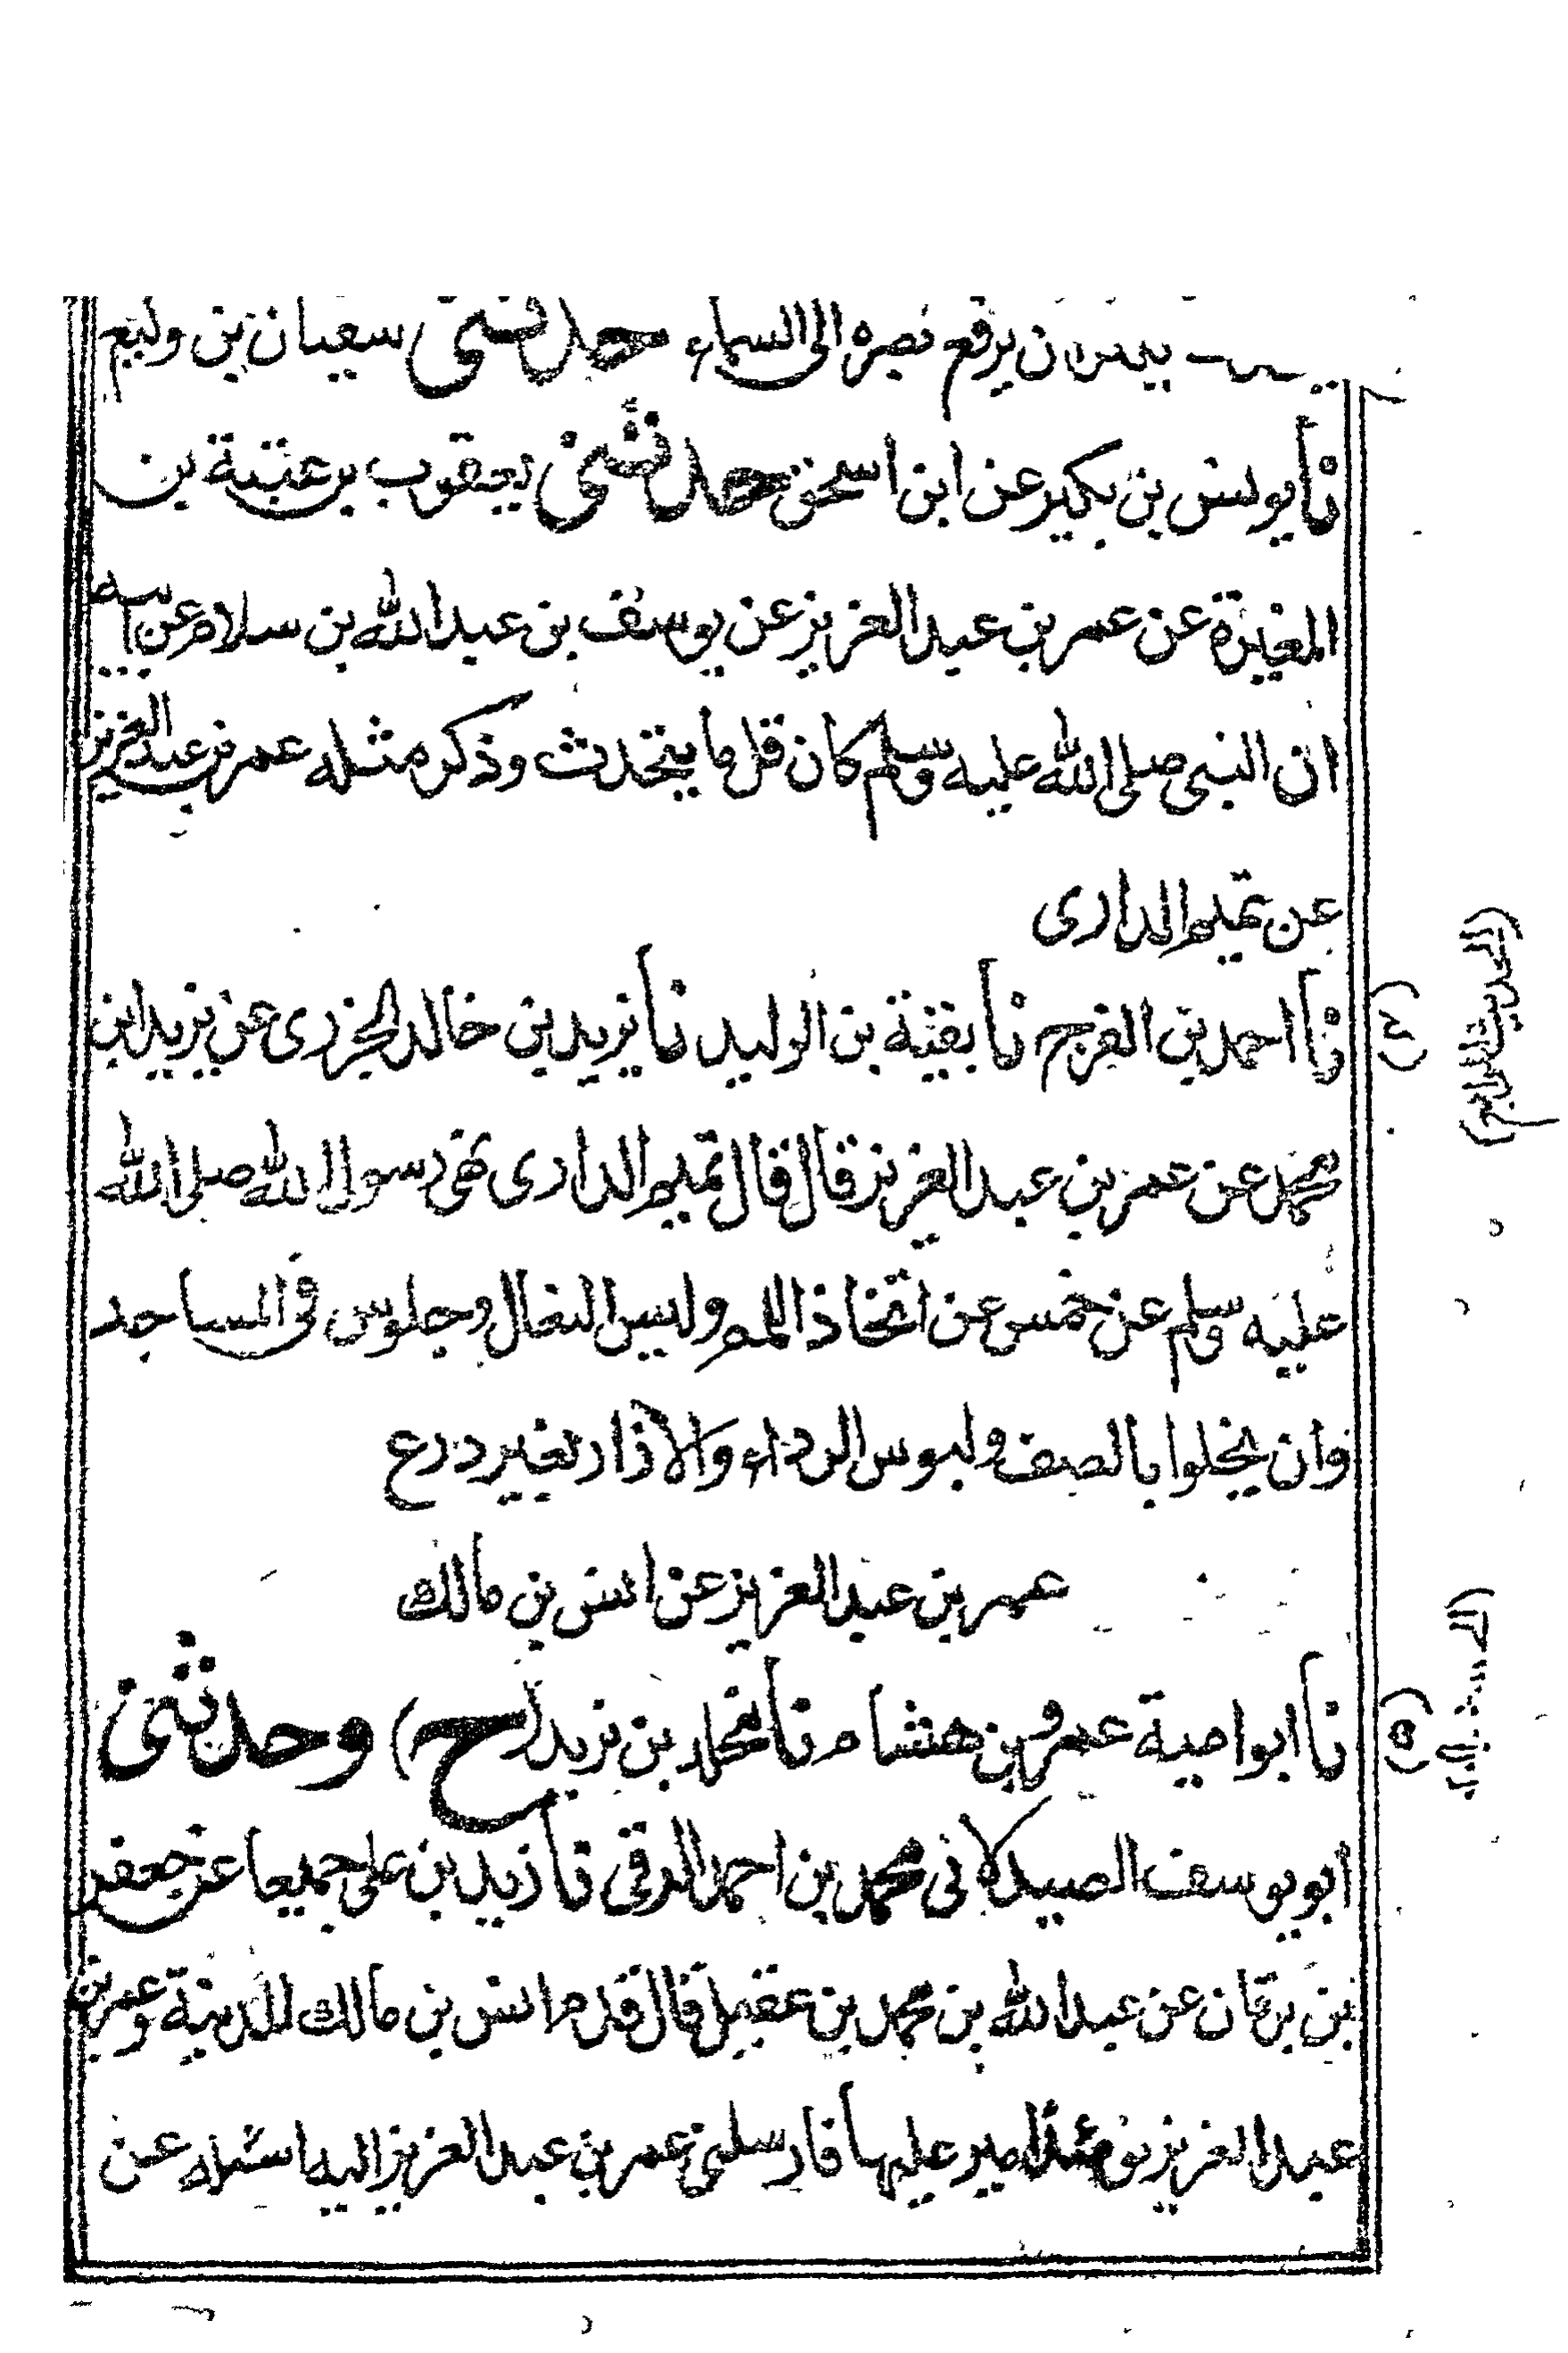 ان يرفع بصره الى السماء حدثنى سفيان بن وكيع
نا يونس بن بكير عن ابن اسحق حدثنى يعقوب بن عتبة بن
المغيرة عن عمر بن عبد العزيز عن يوسف بن عبد الله بن سلام عن ابيه
ان النبى صلى الله عليه وسلم كان قل ما يتحدث وذكر مثله عمر بن عبد العزيز
عن تميم الدارى
نا احمد بن الفرج نا بقية بن الوليد نا يزيد بن خالد الجزرى عن يزيد بن
محمد عن عمر بن عبد العزيز قال قال تميم الدارى نهى رسول الله صلى الله
عليه وسلم عن خمس عن اتخاذ اللمم ولبس النعال وجلوس فى المساجد
وان يخلوا بالصف ولبوس الرداء والازار بغير درع
عمر بن عبد العزيز عن انس بن مالك
نا ابو امية عمرو بن هشام نا مخلد بن يزيد (ح) وحدثنى
ابو يوسف الصيدلانى محمد بن احمد الرقى نا زيد بن على جميعا عن جعفر
بن برقان عن عبد الله بن محمد بن عقيل قال قدم انس بن مالك المدينة وعمر بن
عبد العزيز يومئذ امير عليها فارسلنى عمر بن عبد العزيز اليه اسئله عن
الحديث الرابع
(٤)
(٥)